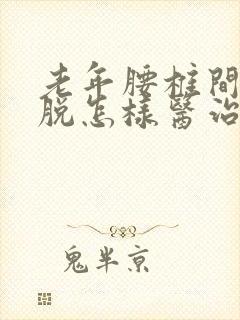 老年腰椎間
脫怎樣醫治
鬼半京